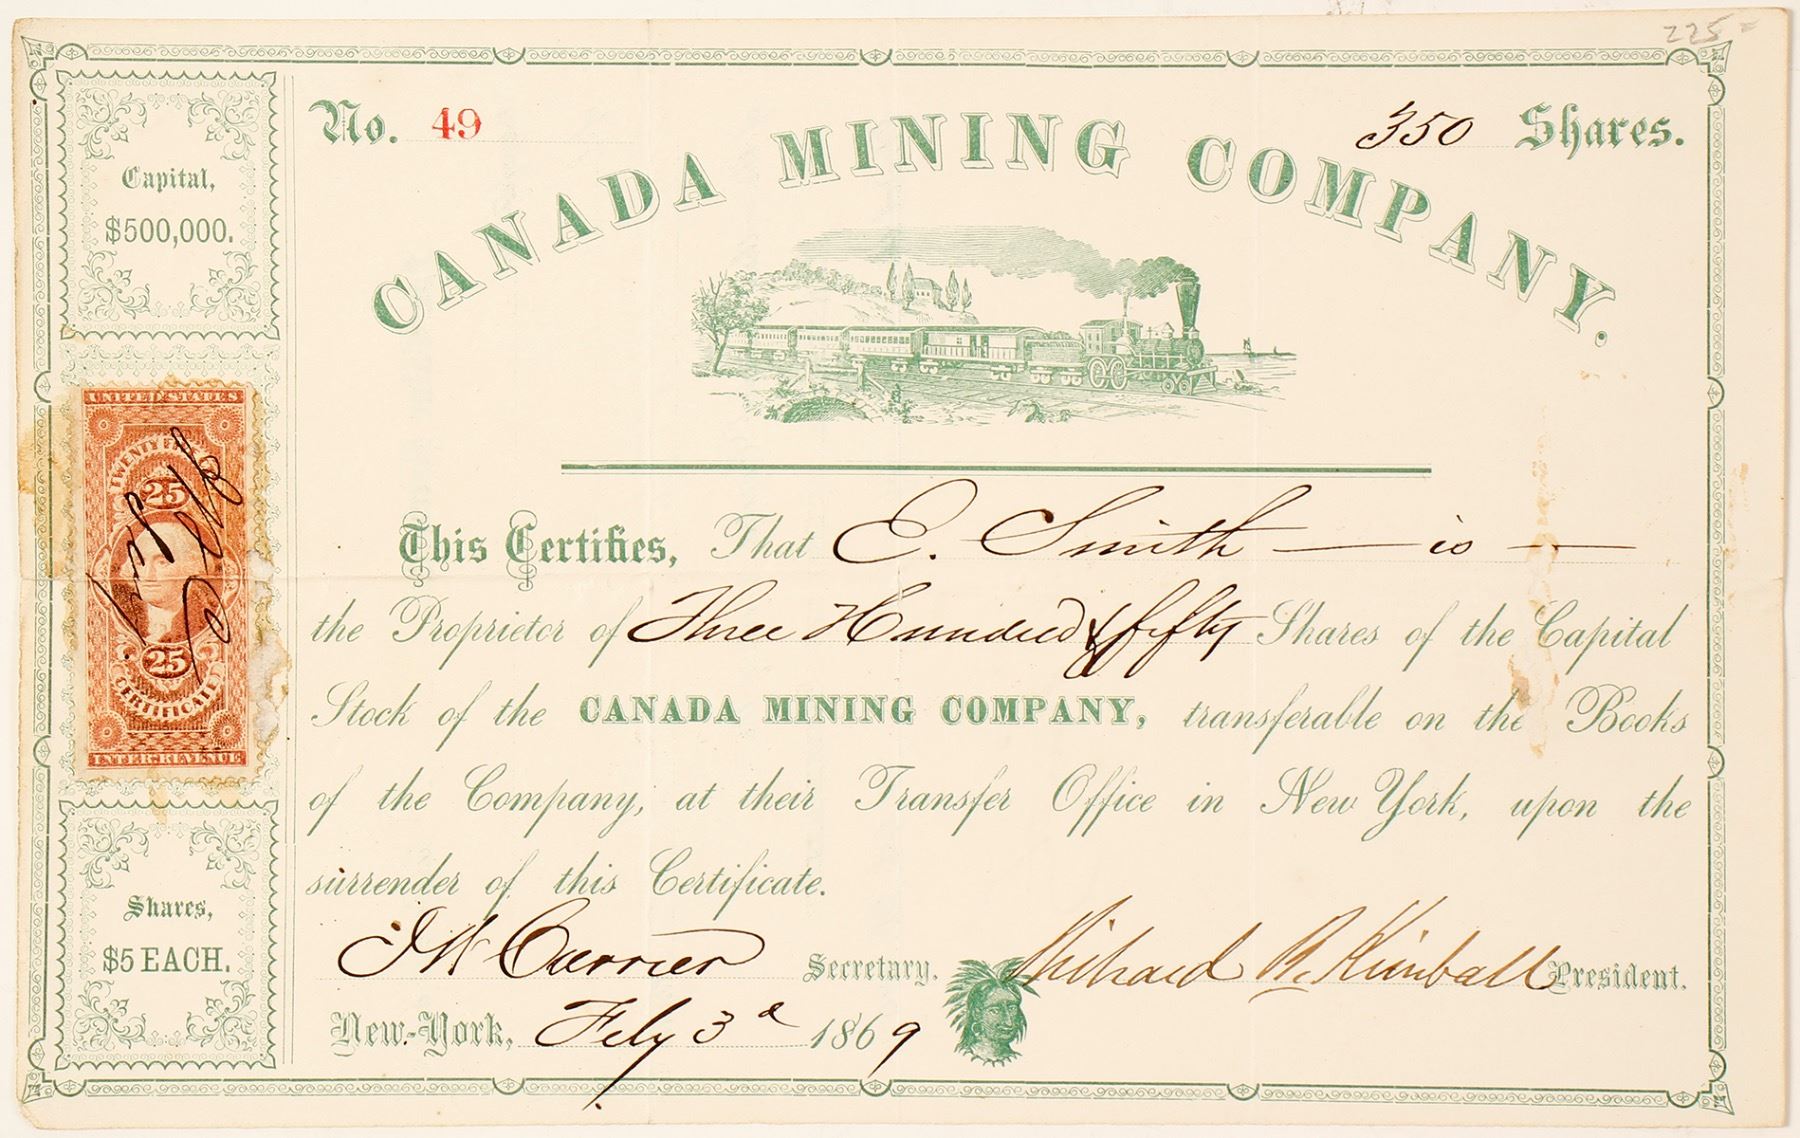 225=
No. 49
350 Shares.
CANADA MINING COMPANY.
Capital,
$500,000.
UNITED STATES
TWENTY FIVE
25
25
CERTIFICATE
INTER. REVENUE
Shares,
$5 EACH.
This Certifies, That E. Smith — is —
the Proprietor of Three Hundred & fifty Shares of the Capital
Stock of the CANADA MINING COMPANY, transferable on the Books
of the Company, at their Transfer Office in New York, upon the
surrender of this Certificate.
J W Currier Secretary. Richard R. Kimball President.
New-York, Feby 3d 1869